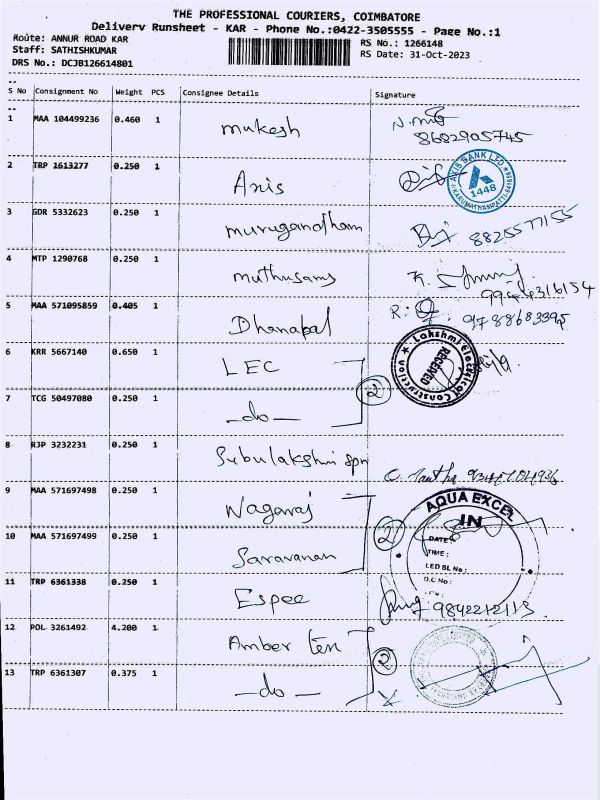 THE PROFESSIONAL COURIERS, COIMBATORE
Delivery Runsheet - KAR - Phone No.:0422-3505555 - Page No.:1
Route: ANNUR ROAD KAR
Staff: SATHISHKUMAR
DRS No.: DCJB126614801
RS No.: 1266148
RS Date: 31-Oct-2023
S No Consignment No Weight PCS Consignee Details Signature
1 MAA 104499236 0.460 1 mukesh
8682905745
2 TRP 1613277 0.250 1 Axis
AXIS BANK LTD
1448
3 GDR 5332623 0.250 1 muruganandham 8825577155
4 MTP 1290768 0.250 1 muthusamy
9944316154
5 MAA 571095859 0.405 1 Dhanapal 9788683395
6 KRR 5667140 0.650 1 LEC
2
Lakshmi Electrical Constructions
RECEIVED
7 TCG 50497080 0.250 1 -do-
8 RJP 3232231 0.250 1 Subulakshmi spn
9 MAA 571697498 0.250 1 Nagaraj
2
AQUA EXCEL
IN
DATE:
TIME:
LED SL No:
D.C No:
10 MAA 571697499 0.250 1 Saravanan
11 TRP 6361338 0.250 1 Espee 9842212113
12 POL 3261492 4.200 1 Amber Tex
2
13 TRP 6361307 0.375 1 -do-